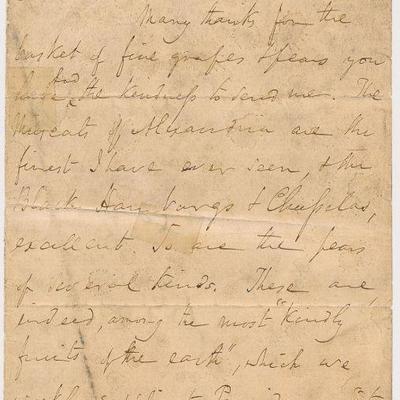 Many thanks for the
basket of fine grapes & pears you
had the kindness to send me. The
Muscats of Alexandria are the
finest I have ever seen, & the
Black Hamburgs & Chasselas,
excellent. So are the pears
of several kinds. These are,
indeed, among the most "kindly
fruits of the earth", which we